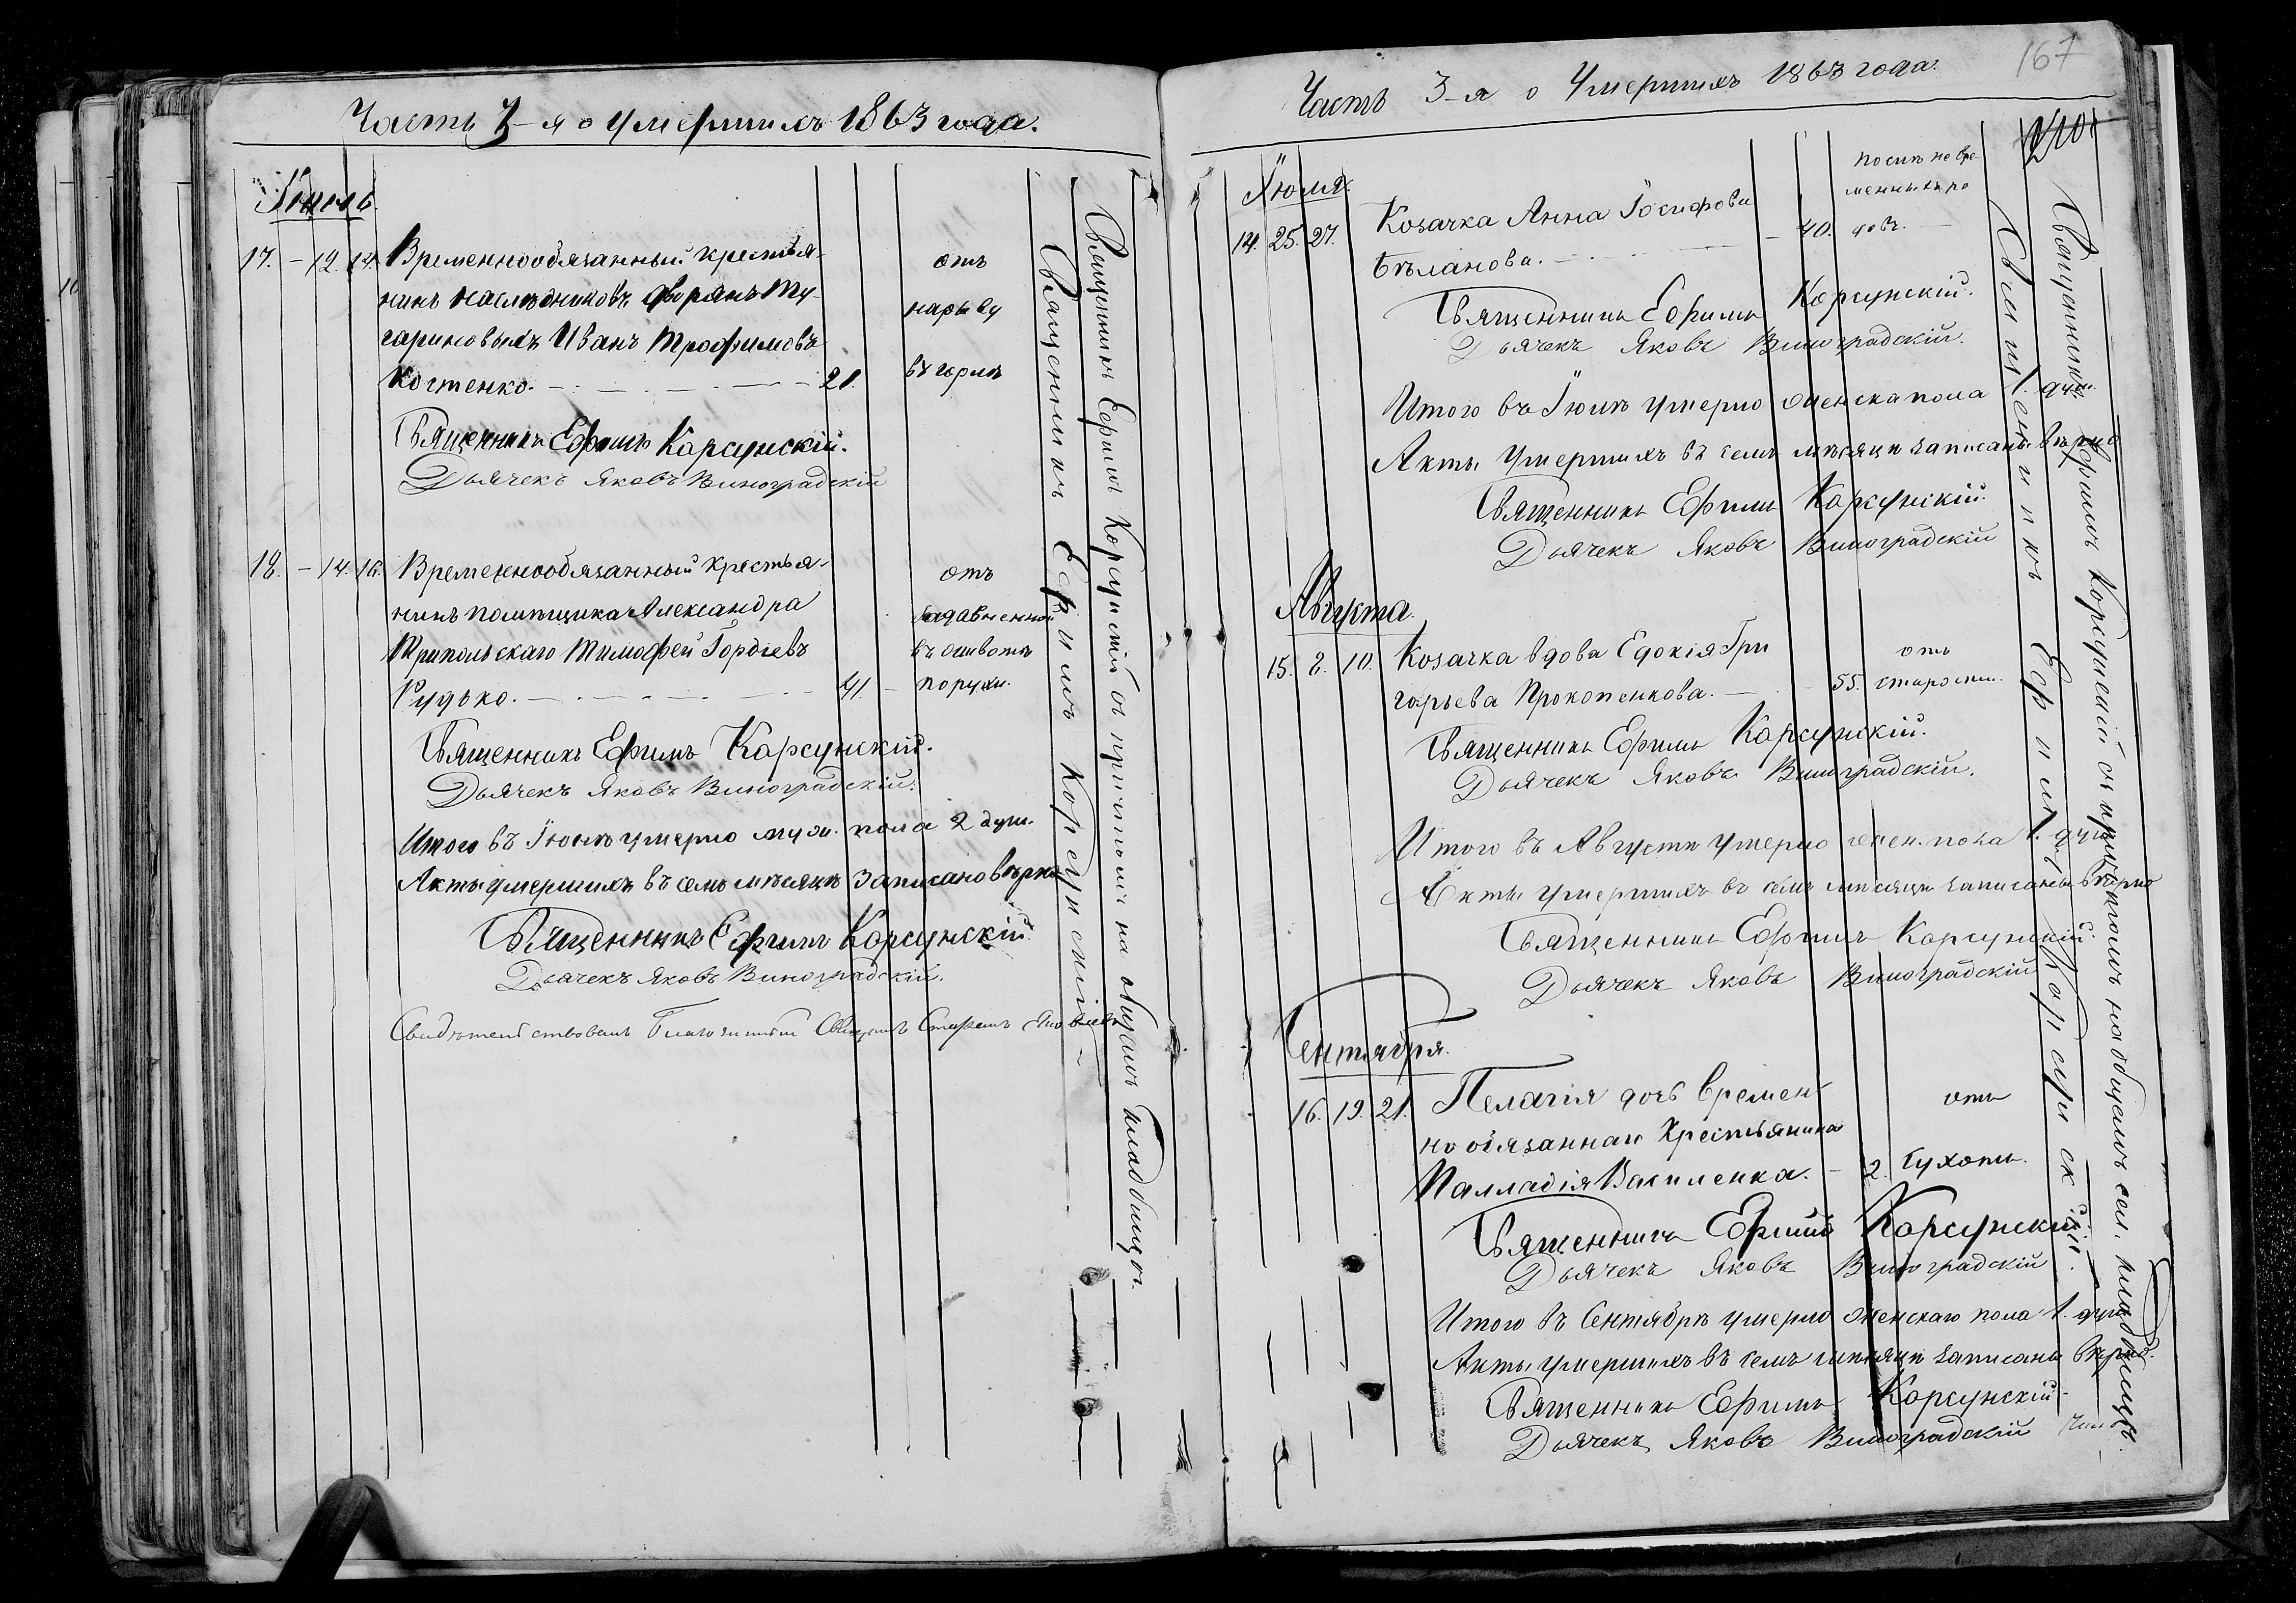 Часть 3-я о умершихъ 1863 года.
Іюнь.
17. – 12. 14. Временнообязанный крестья-
нинъ наслѣдниковъ дворянъ Ту-
гариновыхъ Иванъ Трофимовъ
Костенко. 21.
отъ
нарыву
въ горлѣ
Священникъ Ефимъ Корсунскій.
Дьячекъ Яковъ Виноградскій
18. – 14. 16. Временнообязанный крестья-
нинъ помѣщика Александра
Трипольскаго Тимофей Гордіевъ
Рудько. 41.
отъ
въ животѣ
порухи.
Священникъ Ефимъ Корсунскій.
Дьячекъ Яковъ Виноградскій.
Итого въ Іюнѣ умерло муж. пола 2 душ.
Акты умершихъ въ семъ мѣсяцѣ записано вѣрно
Священникъ Ефимъ Корсунскій
Дьячекъ Яковъ Виноградскій.
Свидѣтельствовалъ Благочинный Священ. Стефанъ
Священникъ Ефимъ Корсунскій
Священникъ Ефимъ Корсунскій съ причтомъ на общемъ кладбищѣ.
167
Часть 3-я о Умершихъ 1863 года.
210.
Іюля.
14. 25. 27. Козачка Анна Іосифова
Бѣланова. 40.
послѣ не вре-
менныхъ ро
довъ.
Священникъ Ефимъ Корсунскій.
Дьячекъ Яковъ Виноградскій.
Итого въ Іюлѣ умерло женска пола 1. душ.
Акты Умершихъ въ семъ мѣсяцѣ записаны вѣрно
Священникъ Ефимъ Корсунскій.
Дьячекъ Яковъ Виноградскій
Августа.
15. 8. 10. Козачка вдова Едокія Гри
горьева Прокопенкова. 55.
отъ
старости.
Священникъ Ефимъ Корсунскій.
Дьячекъ Яковъ Виноградскій.
Итого въ Августѣ умерло женс. пола 1. душ.
Акты умершихъ въ семъ мѣсяцѣ записаны вѣрно
Священникъ Ефимъ Корсунскій.
Дьячекъ Яковъ Виноградскій
Сентября.
16. 19. 21. Пелагія дочь времен-
но обязаннаго Крестьянина
Палладія Василенка. – 2.
отъ
сухоты.
Священникъ Ефимъ Корсунскій.
Дьячекъ Яковъ Виноградскій
Итого въ Сентябрѣ умерло женскаго пола 1. душ.
Акты умершихъ въ семъ мѣсяцѣ записаны вѣрно.
Священникъ Ефимъ Корсунскій.
Дьячекъ Яковъ Виноградскій
Священникъ Ефимъ Корсунскій
Священникъ Ефимъ Корсунскій съ причтомъ на общемъ сел. кладбищѣ.